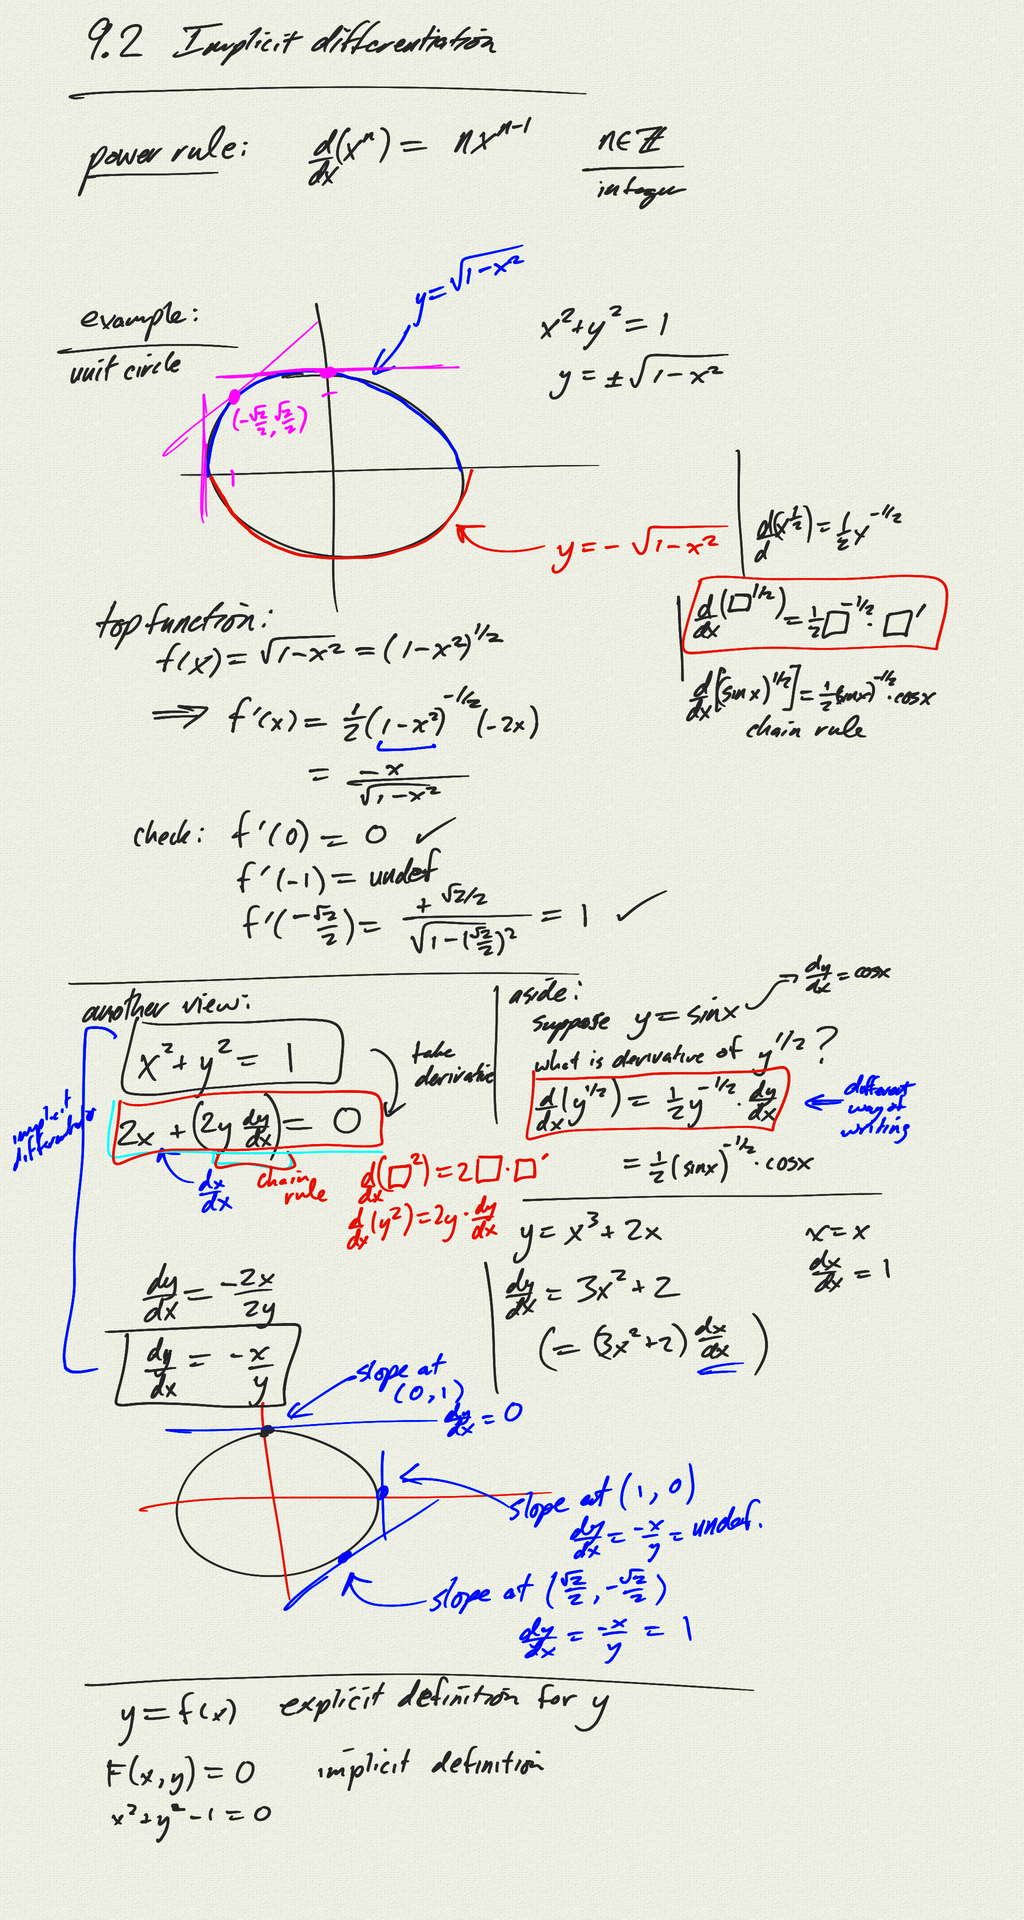 9.2 Implicit differentiation
power rule: d/dx(x^n) = nx^(n-1) n∈ℤ
integer
example:
unit circle
y = √(1-x²)
x²+y² = 1
y = ±√(1-x²)
(-√2/2, √2/2)
y = -√(1-x²)
d/d(x^(1/2)) = 1/2 x^(-1/2)
d/dx(□^(1/2)) = 1/2 □^(-1/2) · □'
d/dx[(sinx)^(1/2)] = 1/2 (sinx)^(-1/2) · cosx
chain rule
top function:
f(x) = √(1-x²) = (1-x²)^(1/2)
⟹ f'(x) = 1/2 (1-x²)^(-1/2) (-2x)
= -x/√(1-x²)
check: f'(0) = 0 ✓
f'(-1) = undef
f'(-√2/2) = (+√2/2)/√(1-(√2/2)²) = 1 ✓
another view:
x²+y² = 1
take derivative
2x + (2y dy/dx) = 0
implicit differentiation
dx/dx
chain rule
d/dx(□²) = 2□·□'
d/dx(y²) = 2y · dy/dx
dy/dx = -2x/2y
dy/dx = -x/y
aside:
suppose y = sinx → dy/dx = cosx
what is derivative of y^(1/2) ?
d/dx(y^(1/2)) = 1/2 y^(-1/2) · dy/dx
different way of writing
= 1/2 (sinx)^(-1/2) · cosx
y = x³+2x
x = x
dy/dx = 3x²+2
dx/dx = 1
(= (3x²+2) dx/dx )
slope at (0,1)
dy/dx = 0
slope at (1, 0)
dy/dx = -x/y = undef.
slope at (√2/2, -√2/2)
dy/dx = -x/y = 1
y = f(x) explicit definition for y
F(x,y) = 0 implicit definition
x²+y²-1 = 0